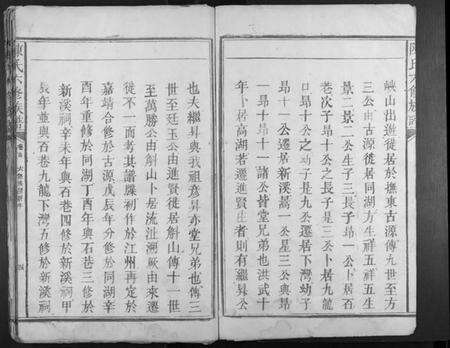 陳氏六修族譜
峽山出進徙居於撫東古源傳九世至方
三公由古源徙居同湖方生祥五祥五生
景二景二公生子三長子昂一公卜居百
巷次子昂十公之長子是三公卜居九龍
口昂十公之幼子是九公遷居下灣幼子
昂十一公遷居新溪景一公是三公與昂
一昂十昂十一諸公皆堂兄弟也洪武十
年卜居高湖若遷進賢生者則有繼昇公
也夫繼昇與我祖意昇亦堂兄弟也傳三
世至廷玉公由進賢徙居斛山傳十一世
至萬勝公由斛山卜居流沚溯厥由來遷
徙不一而考其譜牒初作於江州再定於
嘉靖合修於古源戊辰年分修於同湖辛
酉年重修於同湖丁酉年與石巷三修於
新溪祠辛未年與石巷四修於新溪祠甲
辰年並與石巷九龍下灣五修於新溪祠
陳氏六修族譜
四